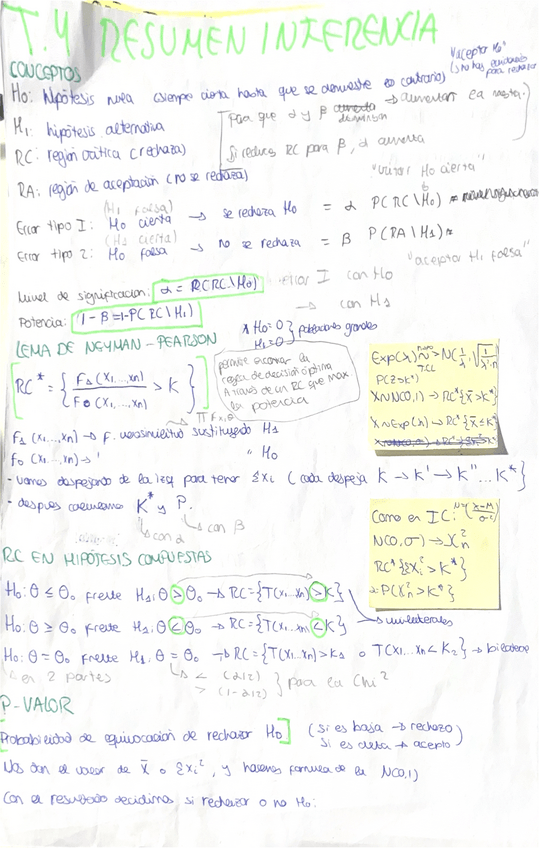 T.4 RESUMEN INFERENCIA
CONCEPTOS
"aceptar H₀"
(si no hay evidencias para rechazar
H₀: hipótesis nula (siempre cierta hasta que se demuestre lo contrario)
H₁: hipótesis alternativa
para que α y β disminuyan → aumentar la muestra.
Si reduces RC para β, α aumenta
RC: región crítica (rechaza)
RA: región de aceptación (no se rechaza)
(H₁ falsa)
Error tipo I: H₀ cierta → se rechaza H₀ = α P(RC\H₀) =
(H₁ cierta)
Error tipo 2: H₀ falsa → no se rechaza = β P(RA\H₁) =
"aceptar H₁ falsa"
Nivel de significación: α = P(RC\H₀) error I con H₀
Potencia: 1-β=1-P(RC\H₁) → con H₁
LEMA DE NEYMAN-PEARSON
RC* = { F₁(x₁,...,xn) / F₀(x₁,...,xn) > K }
permite encontrar la
regla de decisión óptima
a través de un RC que max
la potencia
F₁(x₁,...,xn) → F. verosimilitud sustituyendo H₁
F₀(x₁,...,xn) → " H₀
- vamos despejando de la izq para tener Σxᵢ (cada despeja K → K' → K''... K*}
- después calculamos K* y P.
con α
con β
Exp(λ) ≈ N(1/λ, √1/λ²·n)
TCL
P(Z>K*)
X~N(0,1) → RC*{x̄>K*}
X~Exp(λ) → RC*{x̄≤K*
Como en IC:
N(0,σ) → χ²n
RC*{Σxᵢ²>K*}
=P(χ²n>K*)
RC EN HIPÓTESIS COMPUESTAS
H₀: θ ≤ θ₀ frente H₁: θ > θ₀ → RC={T(x₁...xn) > K}
→ unilaterales
H₀: θ ≥ θ₀ frente H₁: θ < θ₀ → RC={T(x₁...xn) < K}
H₀: θ = θ₀ frente H₁: θ = θ₀ → RC={T(x₁...xn)>K₁ o T(x₁...xn<K₂} → bilateral
en 2 partes
< (α/2)
> (1-α/2) } para la Chi²
P-VALOR
Probabilidad de equivocación de rechazar H₀ (Si es baja → rechazo
Si es alta → acepto)
Nos dan el valor de x̄ o Σxᵢ², y hacemos formula de la N(0,1)
Con el resultado decidimos si rechazar o no H₀: